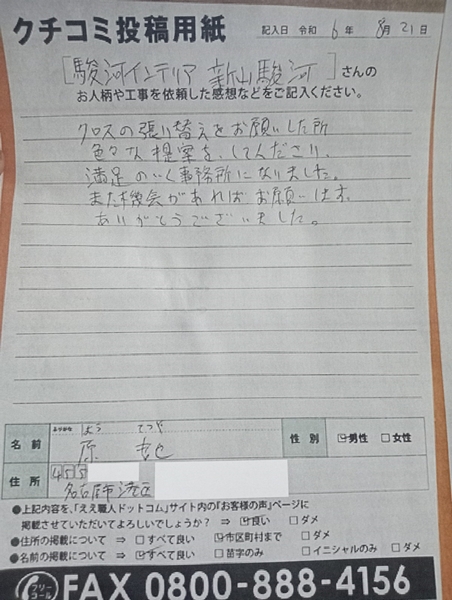 クチコミ投稿用紙
記入日 令和 6年 8月21日
[駿河インテリア 新山駿河]さんの
お人柄や工事を依頼した感想などをご記入ください。
クロスの張り替えをお願いした所
色々な提案を、してくださり、
満足のいく事務所になりました。
また機会があればお願いします。
ありがとうございました。
ふりがな
名前 原 性別 ☑男性 □女性
住所 455
名古屋市港区
●上記内容を、「ええ職人ドットコム」サイト内の「お客様の声」ページに
掲載させていただいてよろしいでしょうか? ⇒ ☑良い □ダメ
●住所の掲載について ⇒ □すべて良い ☑市区町村まで □ダメ
●名前の掲載について ⇒ ☑すべて良い □苗字のみ □イニシャルのみ □ダメ
フリーコール FAX 0800-888-4156